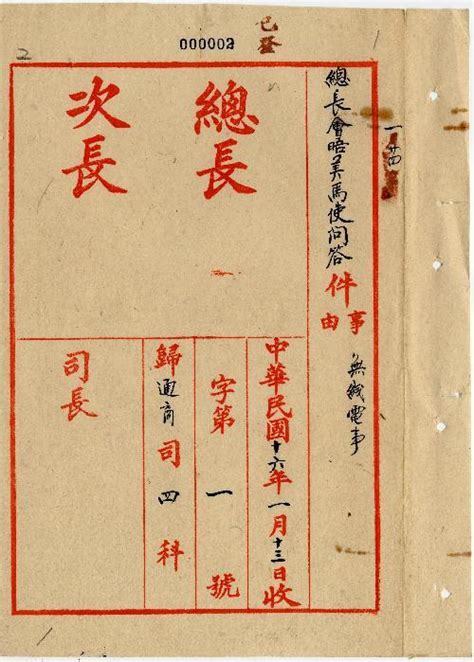 000002
已登
1
2
一 廿四
總長會晤美馬使問答
件
事由
無綫電事
總長
次長
中華民國十六年一月十三日收
字第一號
歸通商司四科
司長
1